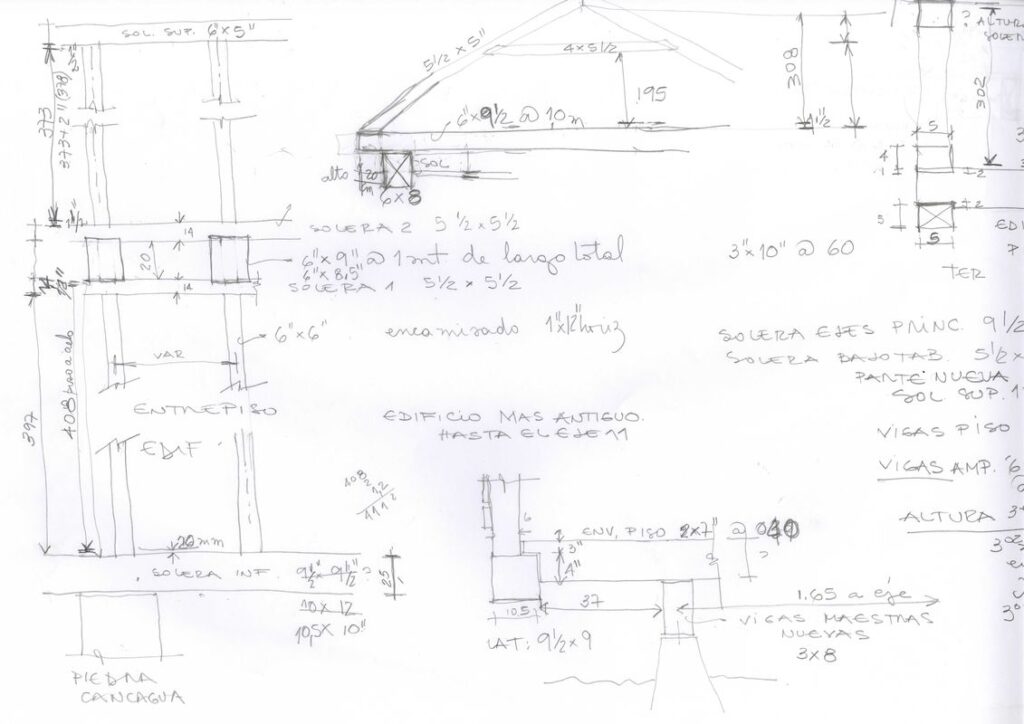 SOL. SUP. 6"x5"
373
373+2"(378)
SOLERA 2 5 1/2 x 5 1/2
14
20
6"x9" @ 1 mt de largo total
6"x8.5"
SOLERA 1 5 1/2 x 5 1/2
14
6"x6"
encamisado 1"x12" horiz
VAR
397
ENTREPISO
EDIF
20 mm
SOLERA INF. 9 1/2 x 9 1/2"
25
10 x 12
10,5 x 10"
PIEDRA
CANCAGUA
5 1/2 x 5"
4 x 5 1/2
195
6"x9 1/2 @ 10 m
308
1 1/2
alto
20
SOL
6x8
EDIFICIO MAS ANTIGUO.
HASTA EL EJE 11
3"x10" @ 60
? ALTURA
302
5
4
1
2
5
2
5
TER
SOLERA EJES PRINC. 9 1/2
SOLERA BAJO TAB. 5 1/2 x
PARTE NUEVA
SOL SUP. 1
VIGAS PISO
VIGAS AMP. "6
ALTURA 3
6
ENV. PISO 2x7" @
3"
4"
?
10,5
37
1.65 a eje
LAT: 9 1/2 x 9
VIGAS MAESTRAS
NUEVAS
3x8